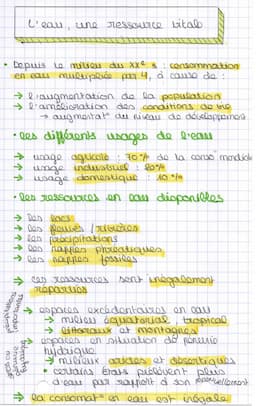 L'eau, une ressource vitale
• Depuis le milieu du XXe s : consommation
en eau multipliée par 4, à cause de :
→ l'augmentation de la population
→ l'amélioration des conditions de vie
→ augmentat° du niveau de développement
• les différents usages de l'eau
→ usage agricole : 70 % de la conso° mondiale
→ usage industriel : 20 %
→ usage domestique : 10 %
• les ressources en eau disponibles
→ les lacs
→ les fleuves / rivières
→ les précipitations
→ les nappes phréatiques
→ les nappes fossiles
→ ces ressources sont inégalement
réparties
→ espaces excédentaires en eau
→ milieu équatorial, tropical
→ littoraux et montagnes
→ espaces en situation de pénurie
hydrique
→ milieux arides et désertiques
• certains États prélèvent plus
d'eau par rapport à son
→ la consomat° en eau est inégale